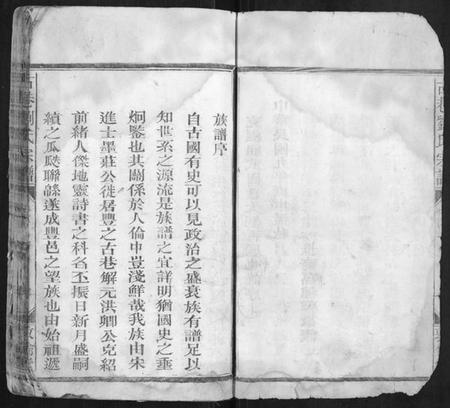 古巷劉氏宗譜
族譜序
自古國有史可以見政治之盛衰族有譜足以
知世系之源流是族譜之宜詳明猶國史之垂
烱鑒也其關係於人倫申豈淺鮮哉我族由宋
進士墨莊公徙居豐之古巷解元洪卿公克紹
前緒人傑地靈詩書之科名丕振日新月盛嗣
續之瓜瓞聯緜遂成豐邑之望族也由始祖遞